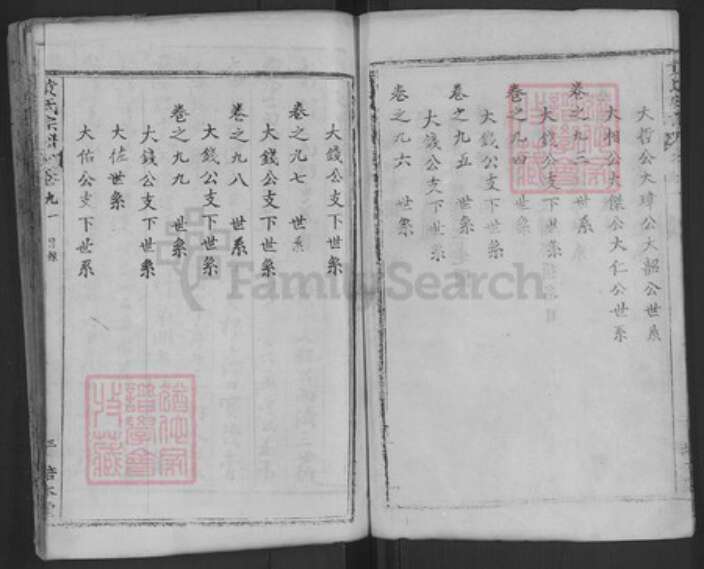 大哲公大璋公大韶公世系
大相公大傑公大仁公世系
卷之九三 世系
大錢公支下世系
卷之九四 世系
大錢公支下世系
卷之九五 世系
大錢公支下世系
卷之九六 世系
大錢公支下世系
卷之九七 世系
大錢公支下世系
卷之九八 世系
大錢公支下世系
卷之九九 世系
大錢公支下世系
大佐世系
大佑公支下世系
卷九一 目錄
FamilySearch